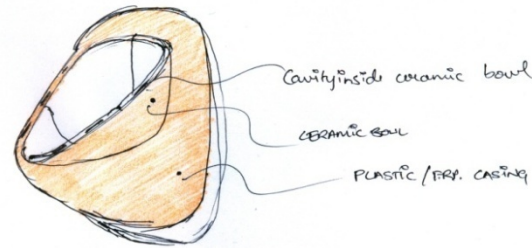 Cavity inside ceramic bowl
CERAMIC BOWL
PLASTIC / FRP. CASING